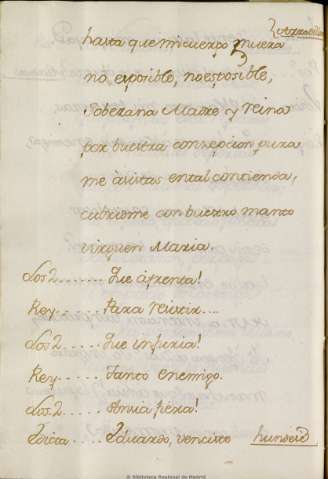 hasta que mi cuerpo muera
no es posible, no es posible,
Soberana Madre y reina
por buestra consepcion pura
me asistas en tal contienda,
cubrisme con buestro manto
virguen Maria.
Los 2..... Que afrenta!
Rey..... Para resistir...
Los 2..... Que injuria!
Rey..... Tanto enemigo.
Los 2..... Ansia fiera!
Eduardo, vencido
© Biblioteca Nacional de Madrid